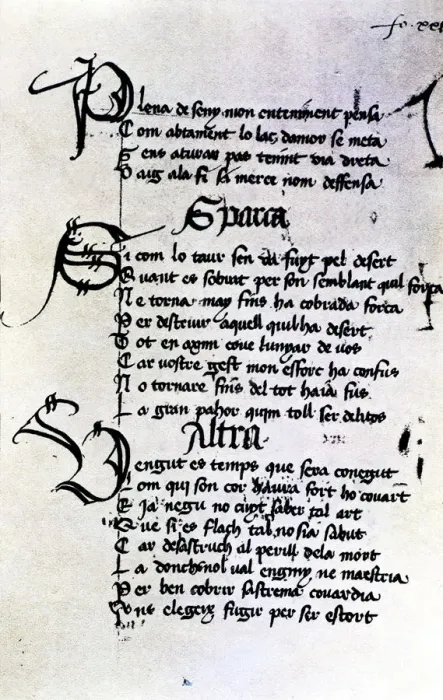 fo. xxx
Plena de seny mon enteniment pensa
Com abtament lo laç damor se meta
Sens aturar pas tenint via dreta
Vaug ala fi si merce nom deffensa
Sparça
Si com lo taur sen va fuyt pel desert
Quant es sobrat per son semblant quil força
Ne torna may fins ha cobrada força
Per destruir aquell quilha desert
Tot en axim cove lunyar de vos
Car vostre gest mon esforç ha confus
No tornare fins del tot haia fus
La gran pahor quim toll ser delitos
Altra
Vengut es temps que sera conegut
Com qui son cor haura fort ho covart
E ja negu no cuyt saber tal art
Que si es flach tal no sia sabut
Car desastruch al perill dela mort
La donchs nol val enginy ne maestria
Per ben cobrir sastrema covardia
Ans elegeix fugir per ser estort